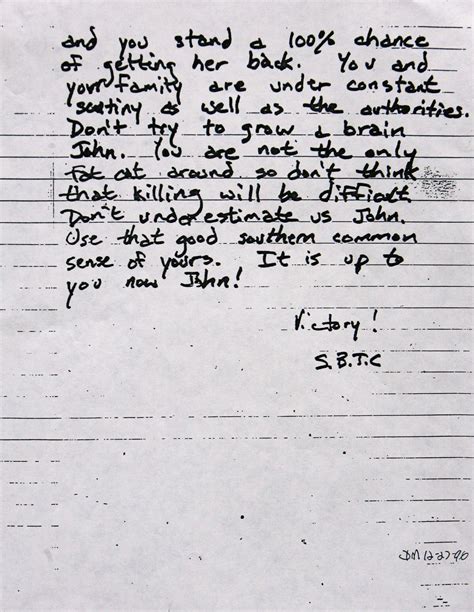 and you stand a 100% chance
of getting her back. You and
your family are under constant
scrutiny as well as the authorities.
Don't try to grow a brain
John. You are not the only
fat cat around so don't think
that killing will be difficult.
Don't underestimate us John.
Use that good southern common
sense of yours. It is up to
you now John!
Victory!
S.B.T.C